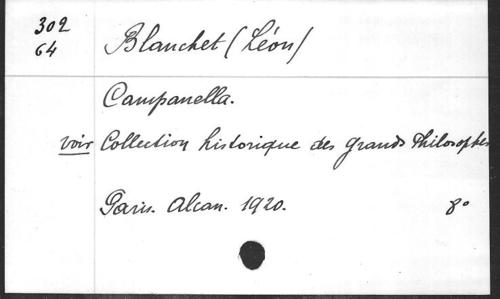 302
64
Blanchet (Léon)
Campanella.
voir Collection historique des grands Philosophes
Paris. Alcan. 1920. 8°